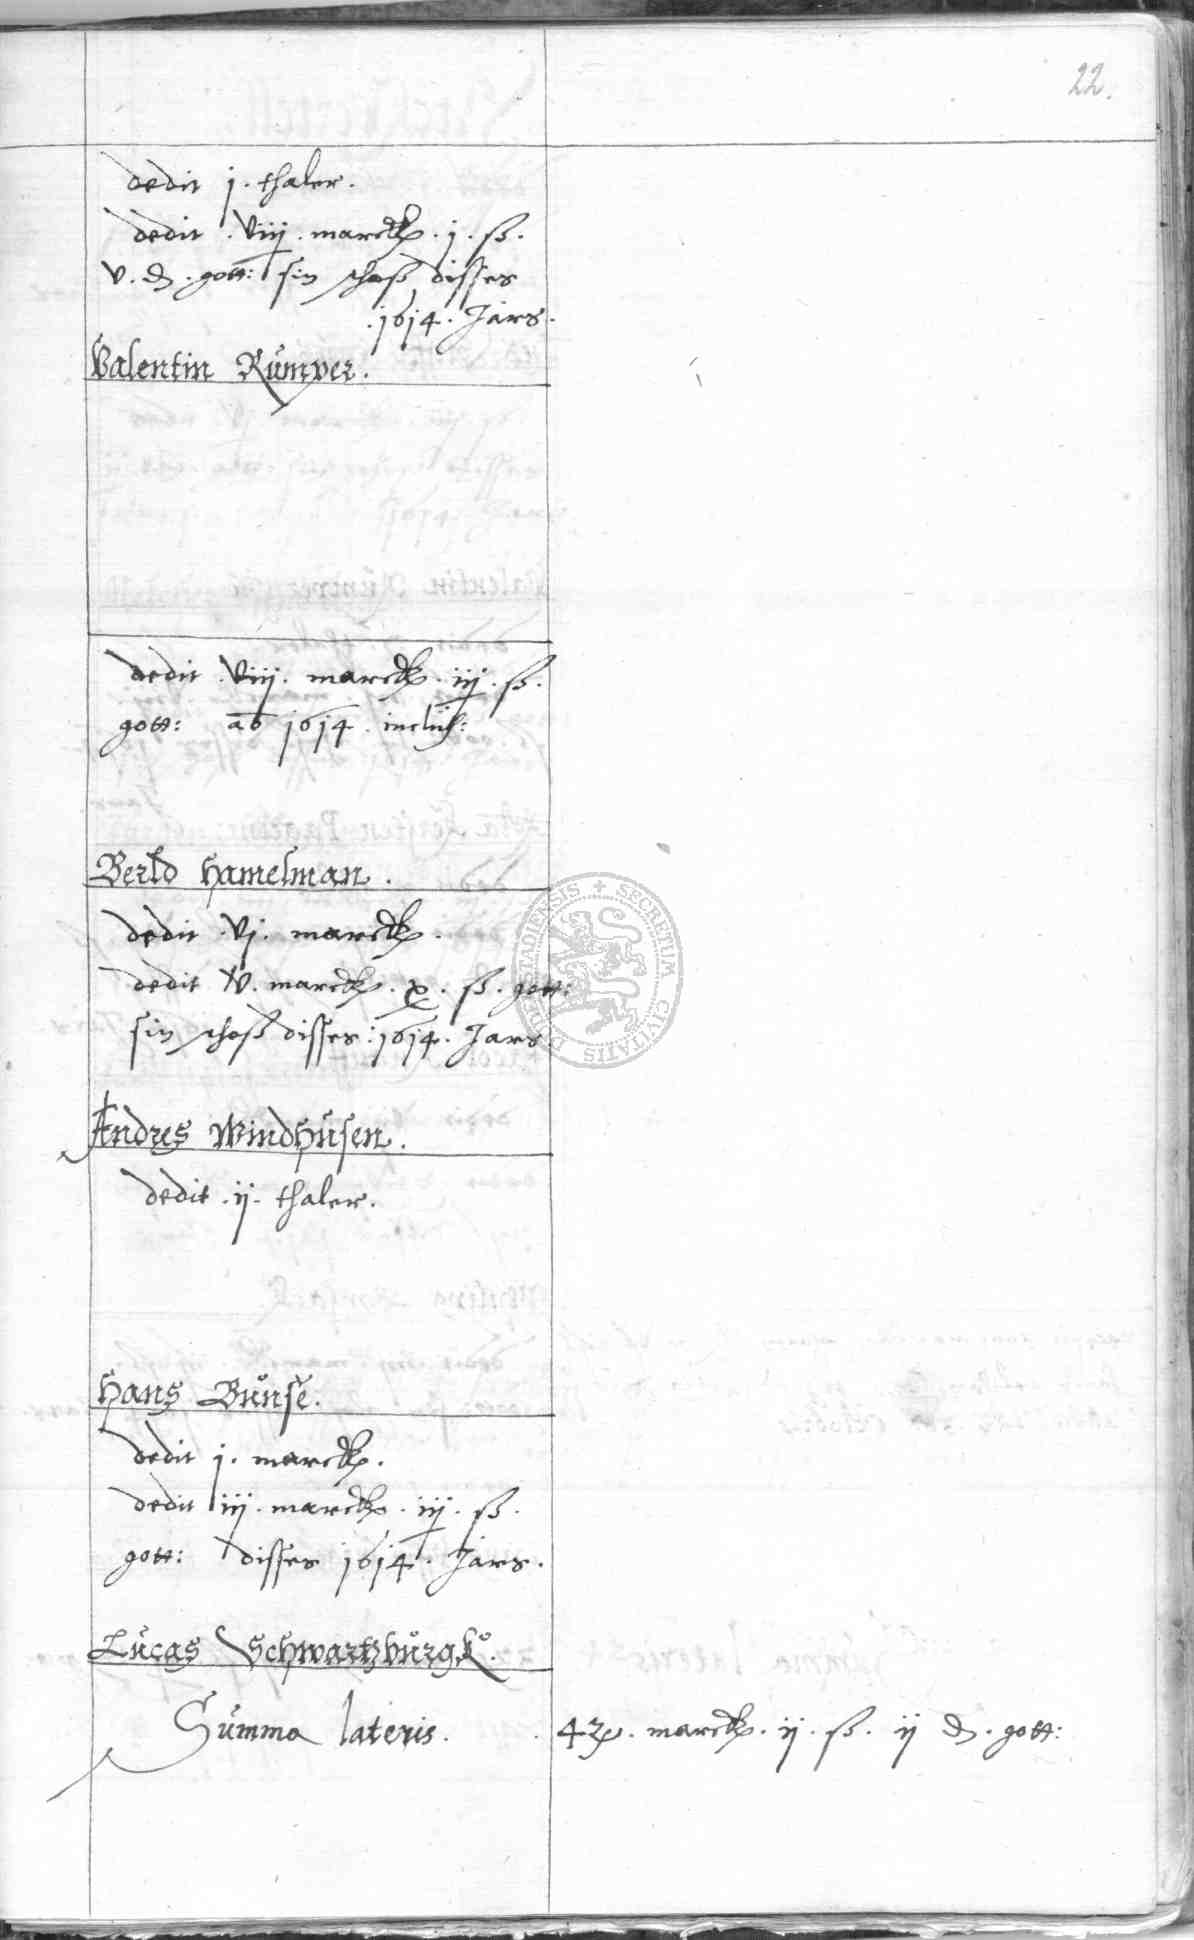 22.
dedit j. thaler.
dedit . viij . marck . j . ß .
v . ₰ . gott: sin schoß disses
. 1614 . Jars .
Valentin Rümper .
dedit . viij . marck . iij . ß .
gott: ab 1614 . inclus:
Bertd Hamelman .
dedit . vj . marck .
dedit v . marck . x . ß . gott:
sin schoß disses : 1614 . Jars
Andres Windhusen .
dedit . ij . thaler .
Hans Bunse .
dedit j . marck .
dedit iij . marck . iij . ß .
gott: disses 1614 . Jars .
Lucas Schwartzburgk .
Summa lateris . 42 . marck . ij . ß . ij ₰ . gott:
SECRETUM CIVITATIS